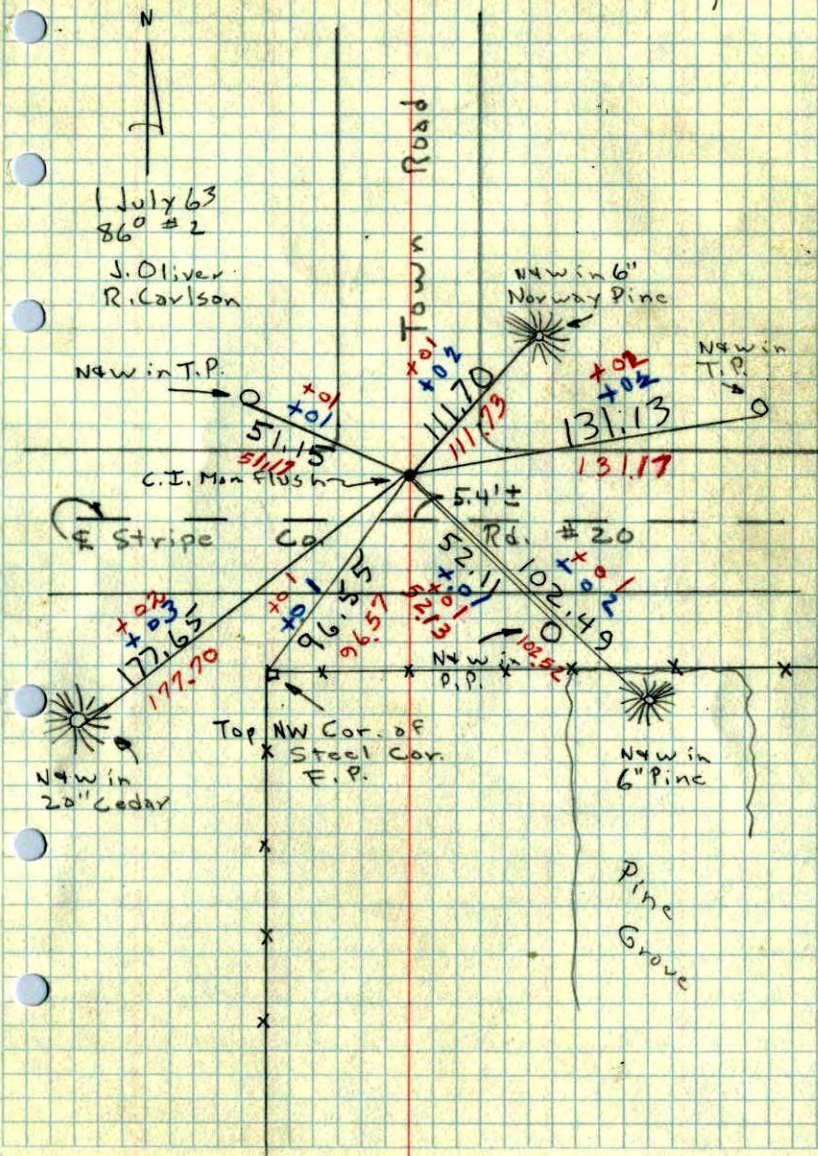 N
1 July 63
86° #2
J. Oliver
R. Carlson
Town Road
N&W in 6"
Norway Pine
N&W in
T.P.
N&W in T.P.
+01
+01
51.15
51.17
+01
+02
111.70
111.73
+02
+02
131.13
131.17
C.I. Mon Flush
5.4'±
℄ Stripe Co. Rd. #20
+02
+03
177.65
177.70
+01
+01
96.55
96.57
52.11
+.01
+01
52.13
+01
+02
102.49
102.52
N&W in
P.P.
Top NW Cor. of
Steel Cor.
F.P.
N&W in
20" Cedar
N&W in
6" Pine
Pine
Grove